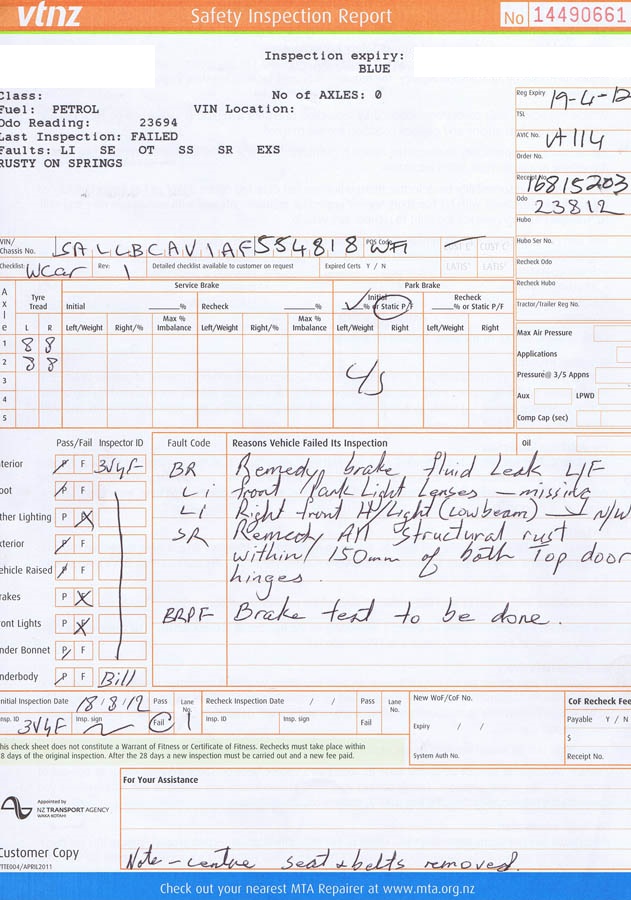 vtnz Safety Inspection Report No 14490661
Inspection expiry:
BLUE
Class: No of AXLES: 0
Fuel: PETROL VIN Location:
Odo Reading: 23694
Last Inspection: FAILED
Faults: LI SE OT SS SR EXS
RUSTY ON SPRINGS
Reg Expiry 19-4-12
TSL
AVIC No. VA114
Order No.
Receipt No. 16815203
Odo 23812
Hubo
VIN/
Chassis No. SALLBCAV1AF554818 POS Code
Hubo Ser No.
Checklist: WCar Rev: 1 Detailed checklist available to customer on request Expired Certs Y / N
Recheck Odo
Recheck Hubo
Tractor/Trailer Reg No.
Axle Tyre Tread L R
Service Brake Park Brake
Initial ____% Recheck ____% Initial ✓% or Static P/F Recheck __% or Static P/F
Left/Weight Right/% Max % Imbalance Left/Weight Right/% Max % Imbalance Left/Weight Right Left/Weight Right
1 8 8
2 8 8
3
4
5
Max Air Pressure
Applications
Pressure@ 3/5 Appns
Aux LPWD
Comp Cap (sec)
Oil
Pass/Fail Inspector ID
terior P F 3V4F
oot P F
ther Lighting P F
xterior P F
ehicle Raised P F
rakes P F
ont Lights P F
nder Bonnet P F
nderbody P F Bill
Fault Code Reasons Vehicle Failed Its Inspection
BR Remedy brake fluid Leak L/F
Li front Park Light Lenses - missing
Li Right front H/Light (Low beam) → N/W
SR Remedy All structural rust
within 150mm of both Top door
hinges.
BRPF Brake test to be done.
nitial Inspection Date 18/8/12 Pass Lane No. 1
Insp. ID 3V4F Insp. sign Fail
Recheck Inspection Date / / Pass Lane No.
Insp. ID Insp. sign Fail
New WoF/CoF No.
Expiry / /
System Auth No.
CoF Recheck Fee
Payable Y / N
$
Receipt No.
his check sheet does not constitute a Warrant of Fitness or Certificate of Fitness. Rechecks must take place within
8 days of the original inspection. After the 28 days a new inspection must be carried out and a new fee paid.
For Your Assistance
Appointed by
NZ TRANSPORT AGENCY
WAKA KOTAHI
Customer Copy
TTE004/APRIL2011
Note - centre seat & belts removed.
Check out your nearest MTA Repairer at www.mta.org.nz